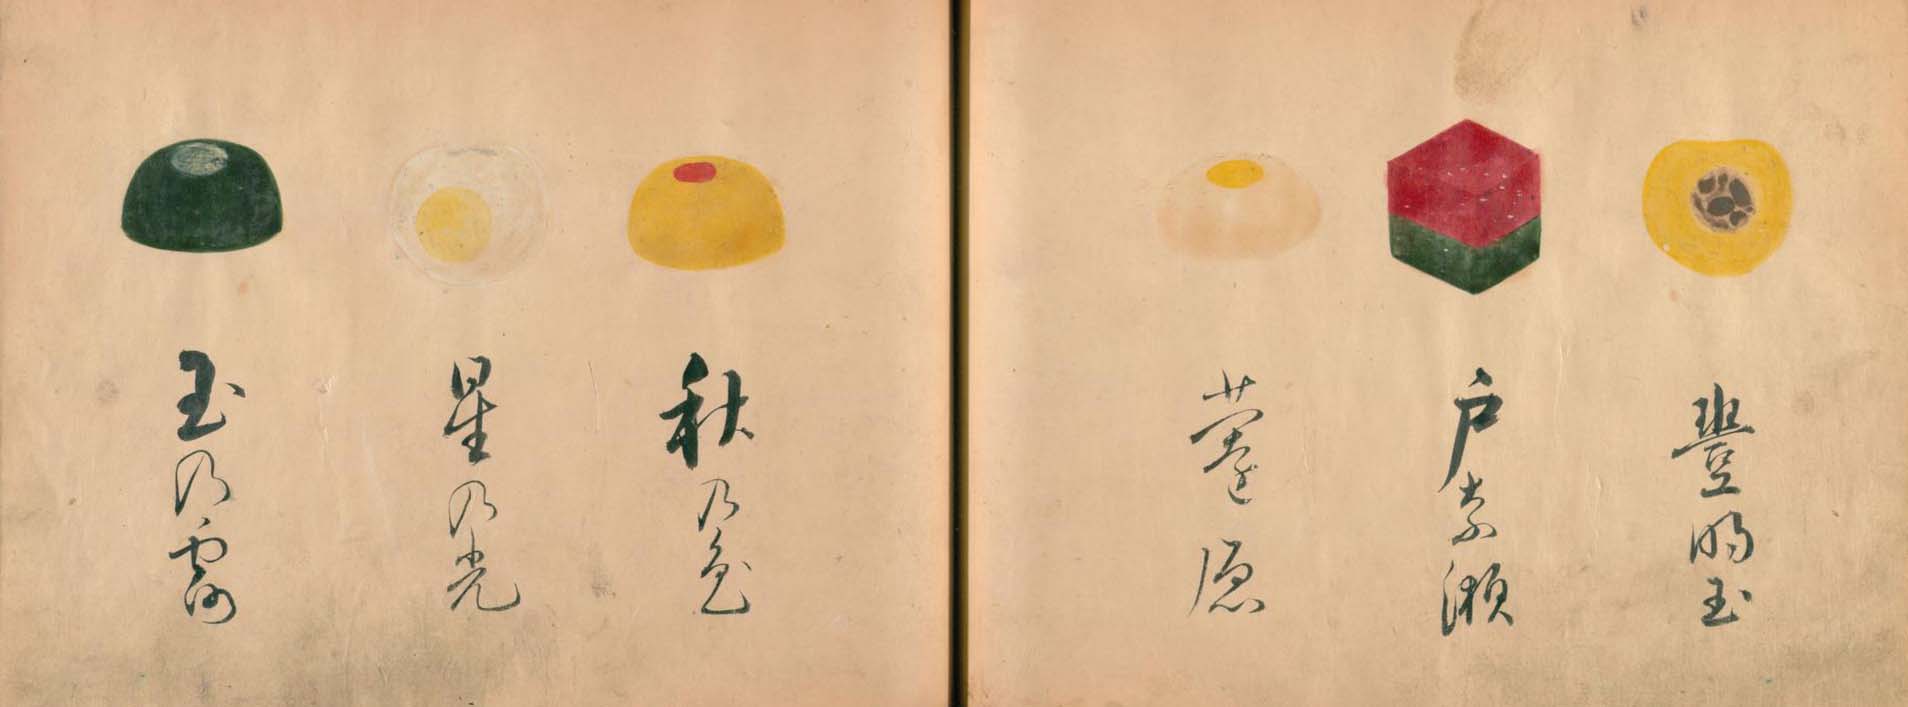 豐明玉
戸奈瀬
原
秋乃色
星乃光
玉乃露